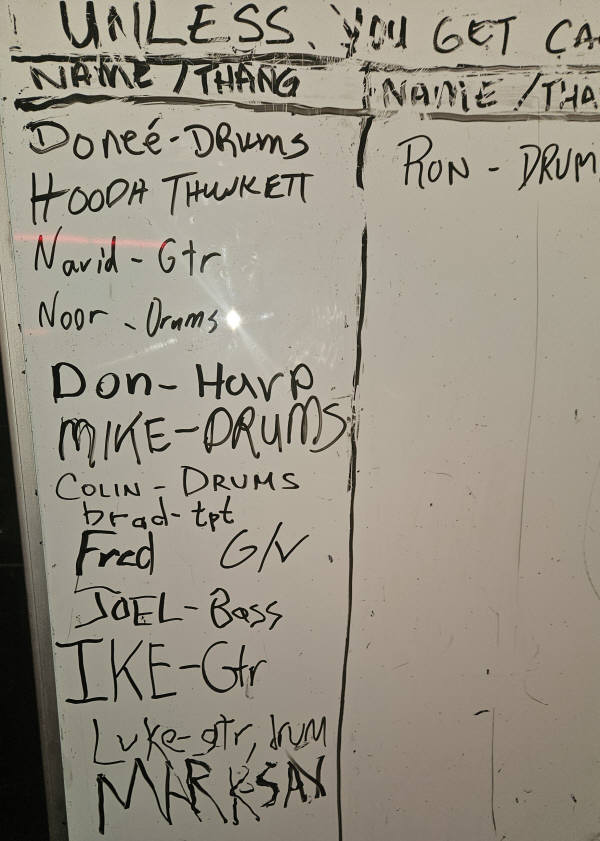 UNLESS, YOU GET CA
NAME / THANG
NAME / THA
Doneé - DRUMS
HOODA THUNKETT
Navid - Gtr
Noor - Drums
Don - Harp
MIKE - DRUMS
COLIN - DRUMS
brad - tpt
Fred G/V
JOEL - Bass
IKE - Gtr
Luke - gtr, drum
MARK SAX
RON - DRUM